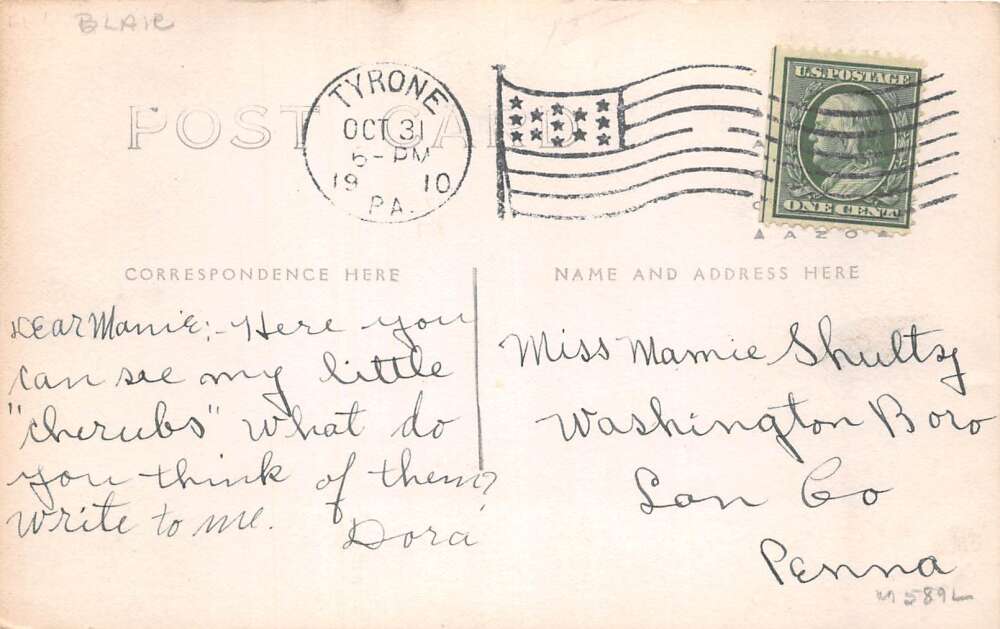 BLAIR
POST CARD
TYRONE
OCT 31
6-PM
19 10
PA.
U.S.POSTAGE
ONE CENT
AZO
CORRESPONDENCE HERE
NAME AND ADDRESS HERE
Dear Mamie:- Here you
can see my little
"cherubs" what do
you think of them?
Write to me.
Dora
Miss Mamie Shultz
Washington Boro
Lan Co
Penna